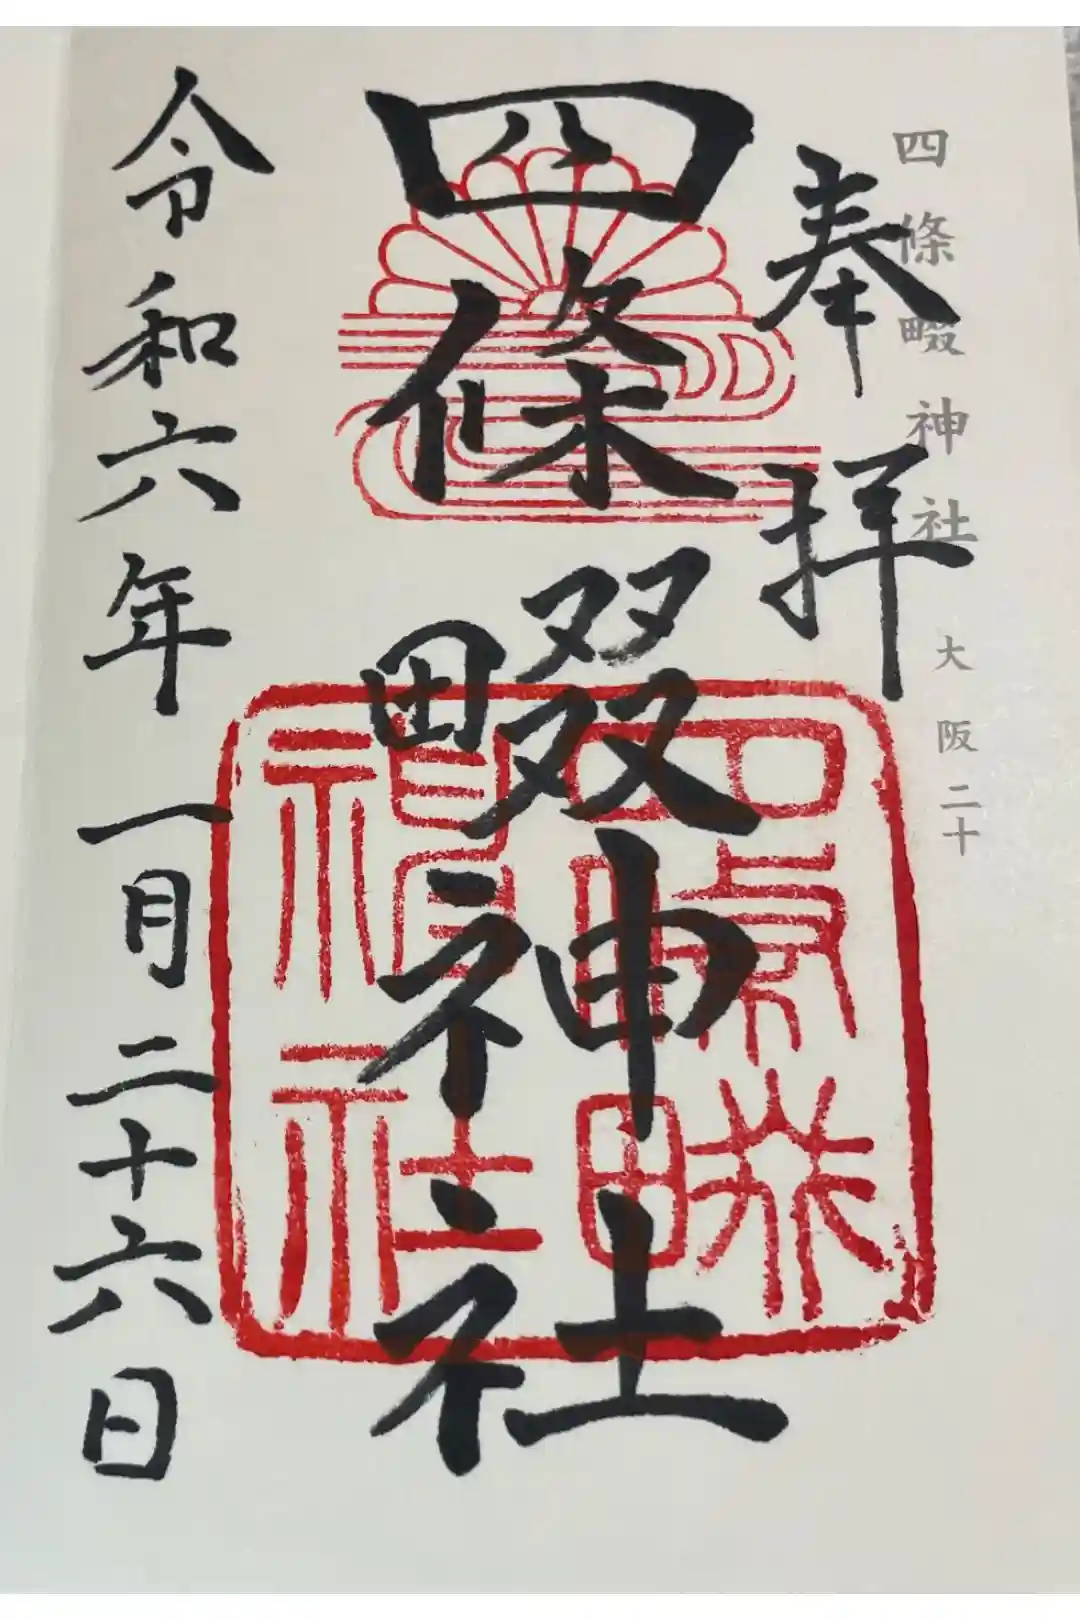 四條畷神社 大阪二十
奉拝
四條畷神社
四條畷神社
令和六年一月二十六日